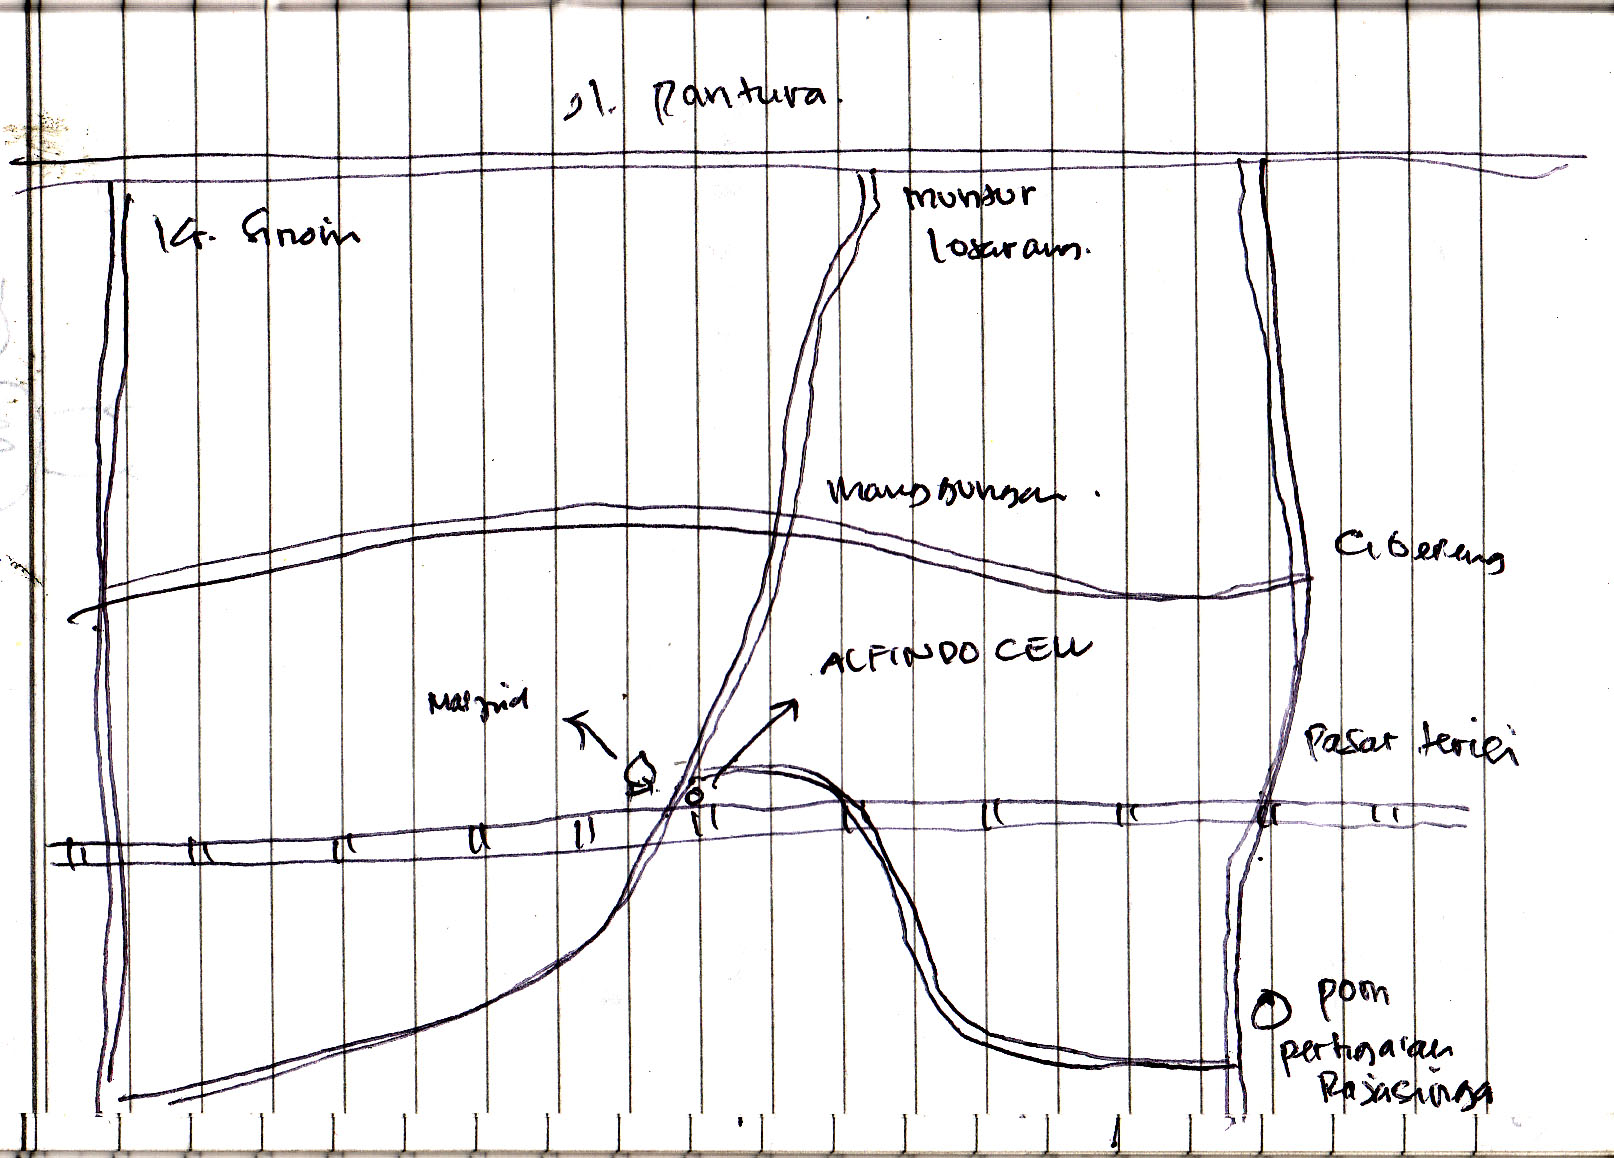 Jl. Pantura.
muntur
losarang.
Manggungan.
Cibereng
ALFINDO CELL
Masjid
Pasar terisi
pom
pertigaan
Rajasinga